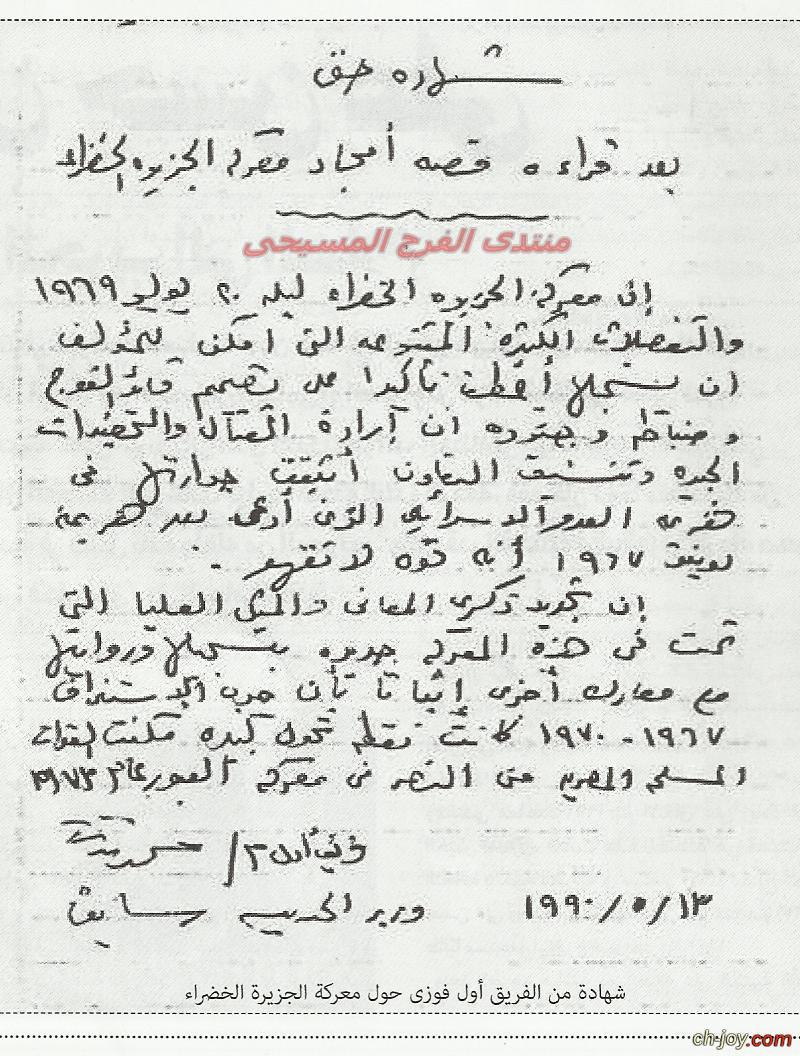 شهاده حق
بعد قراءه قصه أمجاد معركه الجزيره الخضراء
منتدى الفرح المسيحى
إن معركه الجزيره الخضراء ليله ٢٠ يوليو ١٩٦٩
والتفصيلات الكثيره المتنوعه التى امكن للمؤلف
ان يسجلها أعطت تأكيدا على تصميم قائد الفوج
وضباطه وجنوده ان إرادة القتال والتجهيزات
الجيده وتنسيق التعاون أثبتت جدارتها فى
العدو الاسرائيلى الذى أدعى بعد هزيمة
يونيو ١٩٦٧ أنه قوه لا تقهر .
إن تجديد ذكرى المعانى والمثل العليا التى
تمت فى هذه المعركه جديره بتسجيلها وروايتها
مع معارك أخرى إثباتا بأن حرب الاستنزاف
١٩٦٧ - ١٩٧٠ كانت نقطه تحول كبيره مكنت القوات
المسلحه المصريه من النصر فى معركه العبور عام ١٩٧٣
فريق أول م /
١٩٩٠/٥/١٣ وزير الحربيه سابق
شهادة من الفريق أول فوزى حول معركة الجزيرة الخضراء
ch-joy.com